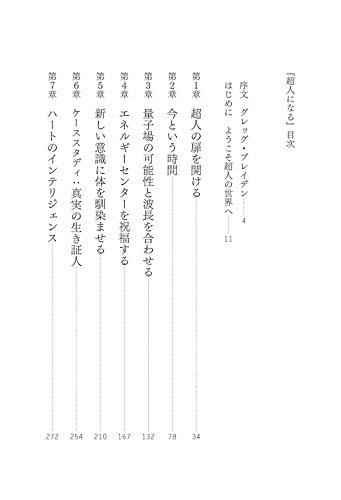 『超人になる』目次
序文　グレッグ・ブレイデン……4
はじめに　ようこそ超人の世界へ……11
第1章　超人の扉を開ける……34
第2章　今という時間……78
第3章　量子場の可能性と波長を合わせる……132
第4章　エネルギーセンターを祝福する……167
第5章　新しい意識に体を馴染ませる……210
第6章　ケーススタディ：真実の生き証人……254
第7章　ハートのインテリジェンス……272